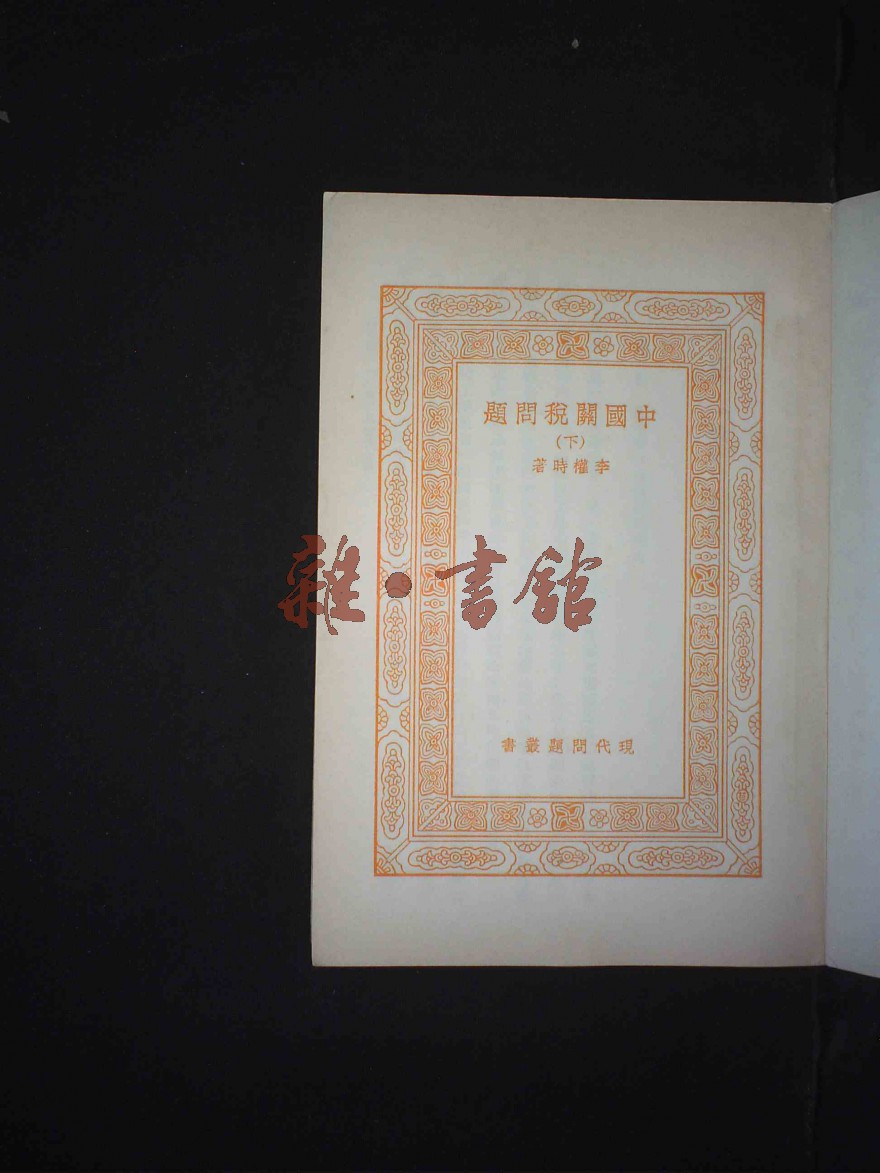 中國關稅問題
(下)
李權時著
雜·書館
現代問題叢書